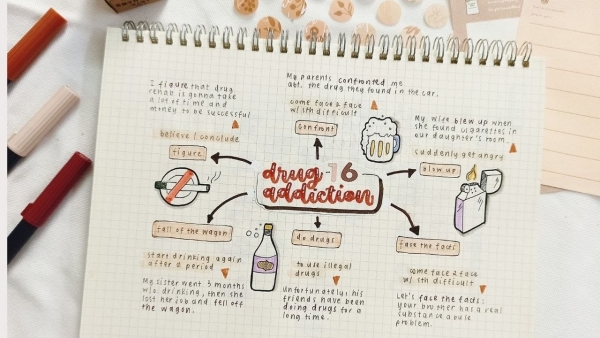 I figure that drug
rehab is gonna take
a lot of time and
money to be successful
believe / conclude
figure
My parents confronted me
abt. the drug they found in the car.
come face 2 face
w/ sth difficult
confront
My wife blew up when
she found cigarettes in
our daughter's room
suddenly get angry
blow up
drug 16
addiction
fall off the wagon
start drinking again
after a period
My sister went 3 months
w/o drinking, then she
lost her job and fell off
the wagon.
do drugs
to use illegal
drugs
Unfortunately, his
friends have been
doing drugs for a
long time.
face the facts
come face 2 face
w/ sth difficult
Let's face the facts:
your brother has a real
substance abuse
problem.